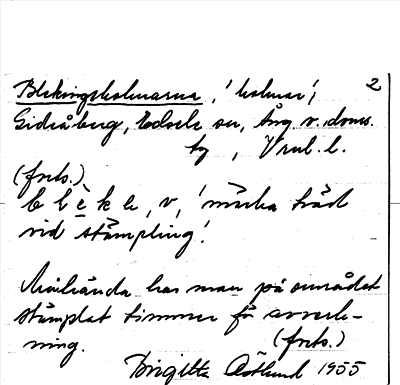 Blekingsholmarna, 'holmar', 2
Gideåberg, Edsele sn, Ång. v. doms.
by, Vrml. l.
(forts.)
blèke, v, 'märka träd
vid stämpling'.
Möjligen har man på området
stämplat timmer för avverk-
ning. (forts.)
Birgitta Östlund 1955